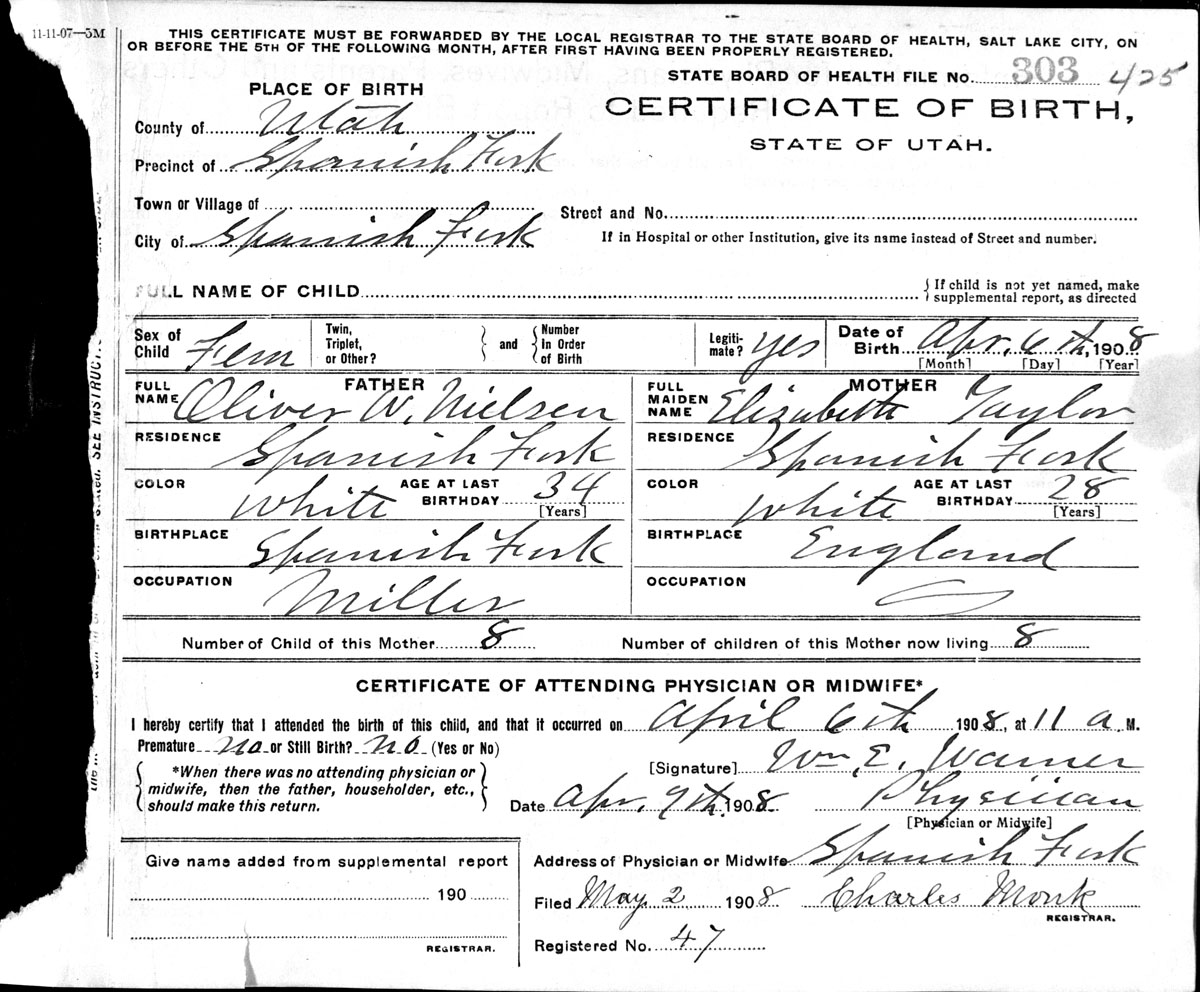 11-11-07—5M
THIS CERTIFICATE MUST BE FORWARDED BY THE LOCAL REGISTRAR TO THE STATE BOARD OF HEALTH, SALT LAKE CITY, ON
OR BEFORE THE 5TH OF THE FOLLOWING MONTH, AFTER FIRST HAVING BEEN PROPERLY REGISTERED.
STATE BOARD OF HEALTH FILE No. 303 425
PLACE OF BIRTH
CERTIFICATE OF BIRTH,
STATE OF UTAH.
County of Utah
Precinct of Spanish Fork
Town or Village of
Street and No.
City of Spanish Fork
If in Hospital or other Institution, give its name instead of Street and number.
FULL NAME OF CHILD
{ If child is not yet named, make
supplemental report, as directed
Sex of Child Fem
Twin, Triplet, or Other? } and { Number In Order of Birth
Legiti-mate? yes
Date of Birth Apr. 6th, 1908
[Month] [Day] [Year]
FATHER
FULL NAME Oliver W. Nielsen
MOTHER
FULL MAIDEN NAME Elizabeth Taylor
RESIDENCE Spanish Fork
RESIDENCE Spanish Fork
COLOR White AGE AT LAST BIRTHDAY 34 [Years]
COLOR White AGE AT LAST BIRTHDAY 28 [Years]
BIRTHPLACE Spanish Fork
BIRTHPLACE England
OCCUPATION Miller
OCCUPATION
Number of Child of this Mother 8 Number of children of this Mother now living 8
CERTIFICATE OF ATTENDING PHYSICIAN OR MIDWIFE*
I hereby certify that I attended the birth of this child, and that it occurred on April 6th 1908, at 11 a M.
Premature no or Still Birth? no (Yes or No)
{ *When there was no attending physician or
midwife, then the father, householder, etc.,
should make this return. }
[Signature] Wm. E. Warner
Date Apr. 9th. 1908 Physician
[Physician or Midwife]
Give name added from supplemental report
190
REGISTRAR.
Address of Physician or Midwife Spanish Fork
Filed May 2 1908 Charles Monk
REGISTRAR.
Registered No. 47
SEE INSTRUC